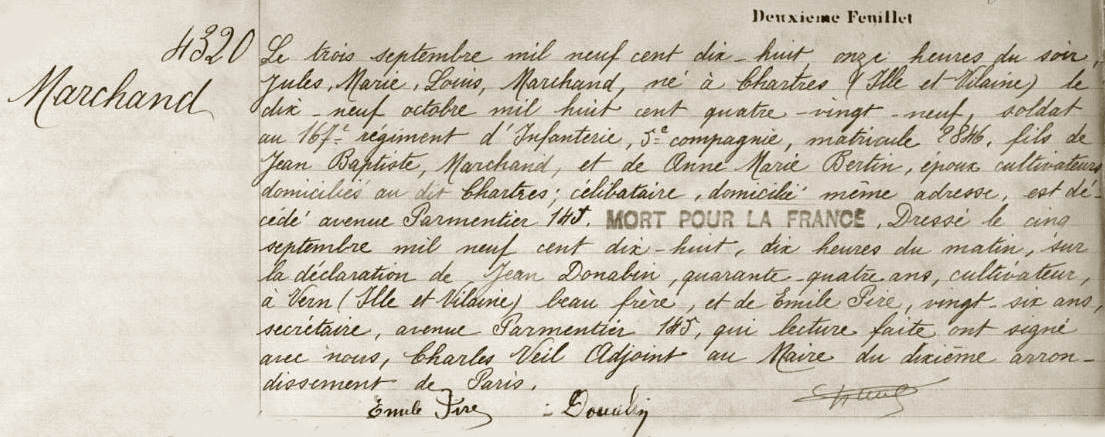 Deuxième Feuillet
4320
Marchand
Le trois septembre mil neuf cent dix-huit onze heures du soir,
Jules, Marie, Louis, Marchand, né à Chartres (Ille et Vilaine) le
dix-neuf octobre mil huit cent quatre-vingt-neuf, soldat
au 167e régiment d'Infanterie, 5e compagnie, matricule 2846, fils de
Jean Baptiste, Marchand, et de Anne Marie Bertin, époux cultivateurs
domiciliés au dit Chartres; célibataire, domicilié même adresse, est dé-
cédé avenue Parmentier 145. MORT POUR LA FRANCE. Dressé le cinq
septembre mil neuf cent dix-huit, dix heures du matin, sur
la déclaration de Jean Donabin, quarante-quatre ans, cultivateur,
à Vern (Ille et Vilaine) beau frère, et de Emile Pire, vingt-six ans,
secrétaire, avenue Parmentier 145, qui lecture faite ont signé
avec nous, Charles Veil Adjoint au Maire du dixième arron-
dissement de Paris.
Emile Pire Donabin